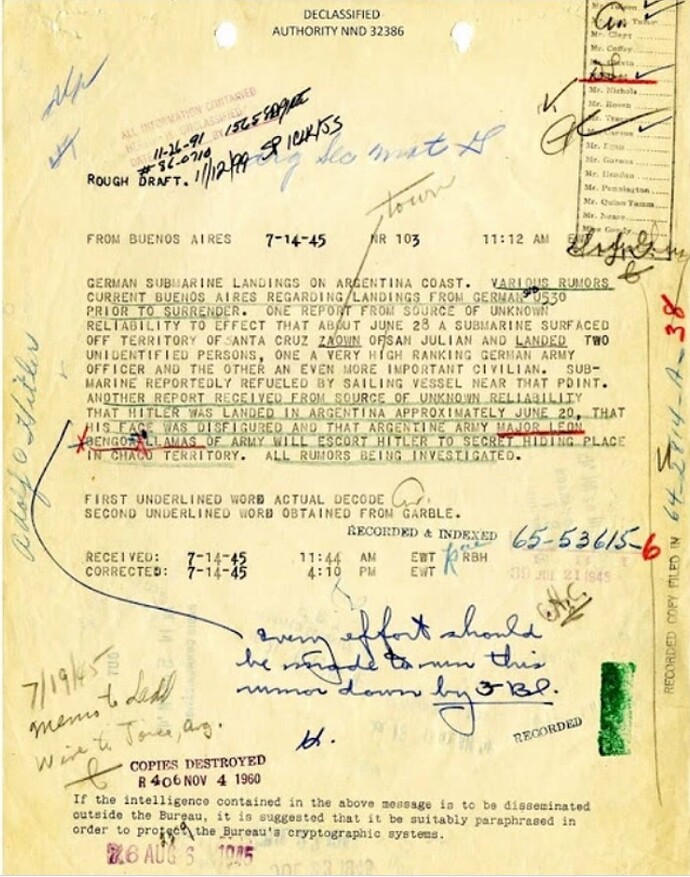 DECLASSIFIED
AUTHORITY NND 32386
Mr. Clegg
Mr. Coffey
Mr. Nichols
Mr. Rosen
Mr. Tracy
Mr. Carson
Mr. Egan
Mr. Gurnea
Mr. Hendon
Mr. Pennington
Mr. Quinn Tamm
Mr. Nease
Miss Gandy
ALL INFORMATION CONTAINED
11-26-91
#86-0710
11/12/99
ROUGH DRAFT.
town
FROM BUENOS AIRES 7-14-45 NR 103 11:12 AM
GERMAN SUBMARINE LANDINGS ON ARGENTINA COAST. VARIOUS RUMORS
CURRENT BUENOS AIRES REGARDING LANDINGS FROM GERMAN U530
PRIOR TO SURRENDER. ONE REPORT FROM SOURCE OF UNKNOWN
RELIABILITY TO EFFECT THAT ABOUT JUNE 28 A SUBMARINE SURFACED
OFF TERRITORY OF SANTA CRUZ ZAOWN OFSAN JULIAN AND LANDED TWO
UNIDENTIFIED PERSONS, ONE A VERY HIGH RANKING GERMAN ARMY
OFFICER AND THE OTHER AN EVEN MORE IMPORTANT CIVILIAN. SUB-
MARINE REPORTEDLY REFUELED BY SAILING VESSEL NEAR THAT POINT.
ANOTHER REPORT RECEIVED FROM SOURCE OF UNKNOWN RELIABILITY
THAT HITLER WAS LANDED IN ARGENTINA APPROXIMATELY JUNE 20, THAT
HIS FACE WAS DISFIGURED AND THAT ARGENTINE ARMY MAJOR LEON
BENGOA LLAMAS OF ARMY WILL ESCORT HITLER TO SECRET HIDING PLACE
IN CHACO TERRITORY. ALL RUMORS BEING INVESTIGATED.
Adolf Hitler
FIRST UNDERLINED WORD ACTUAL DECODE
SECOND UNDERLINED WORD OBTAINED FROM GARBLE.
RECORDED & INDEXED 65-53615-6
RECEIVED: 7-14-45 11:44 AM EWT RBH
CORRECTED: 7-14-45 4:10 PM EWT
JUL 21 1945
RECORDED COPY FILED IN 64-2814-A-38
every effort should
be made to run this
rumor down by
H.
RECORDED
7/19/45
memo to Ladd
Wire to
COPIES DESTROYED
R 406 NOV 4 1960
If the intelligence contained in the above message is to be disseminated
outside the Bureau, it is suggested that it be suitably paraphrased in
order to protect the Bureau's cryptographic systems.
AUG 6 1945